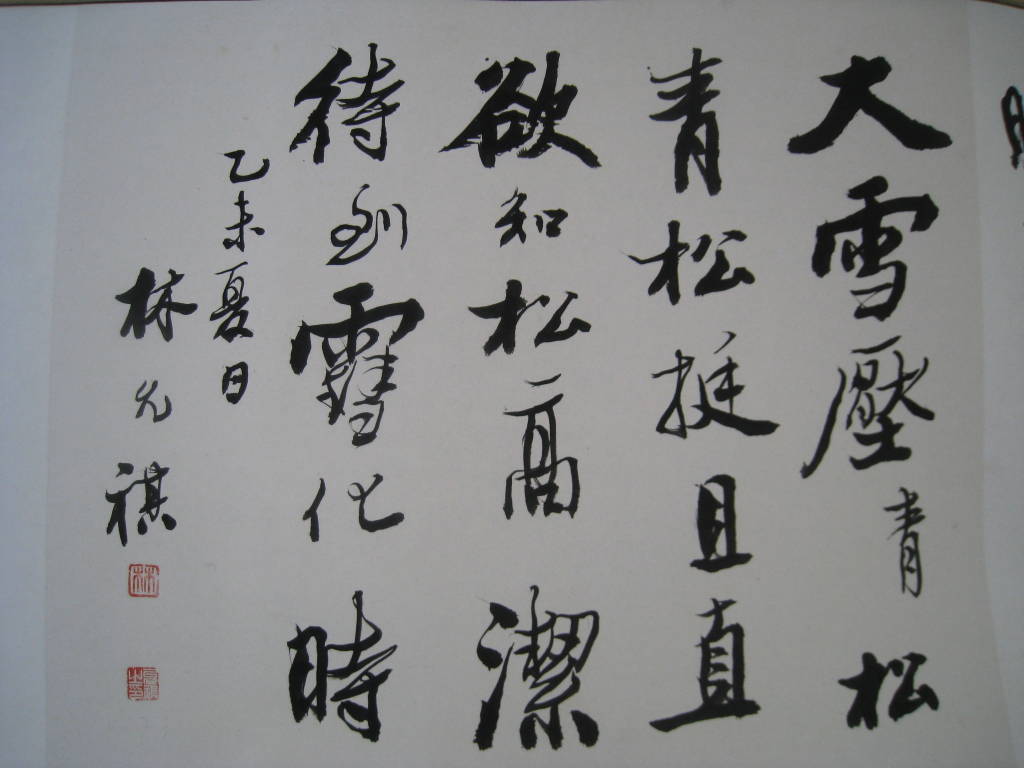 大雪壓青松
青松挺且直
欲知松高潔
待到雪化時
乙未夏日
林允祺